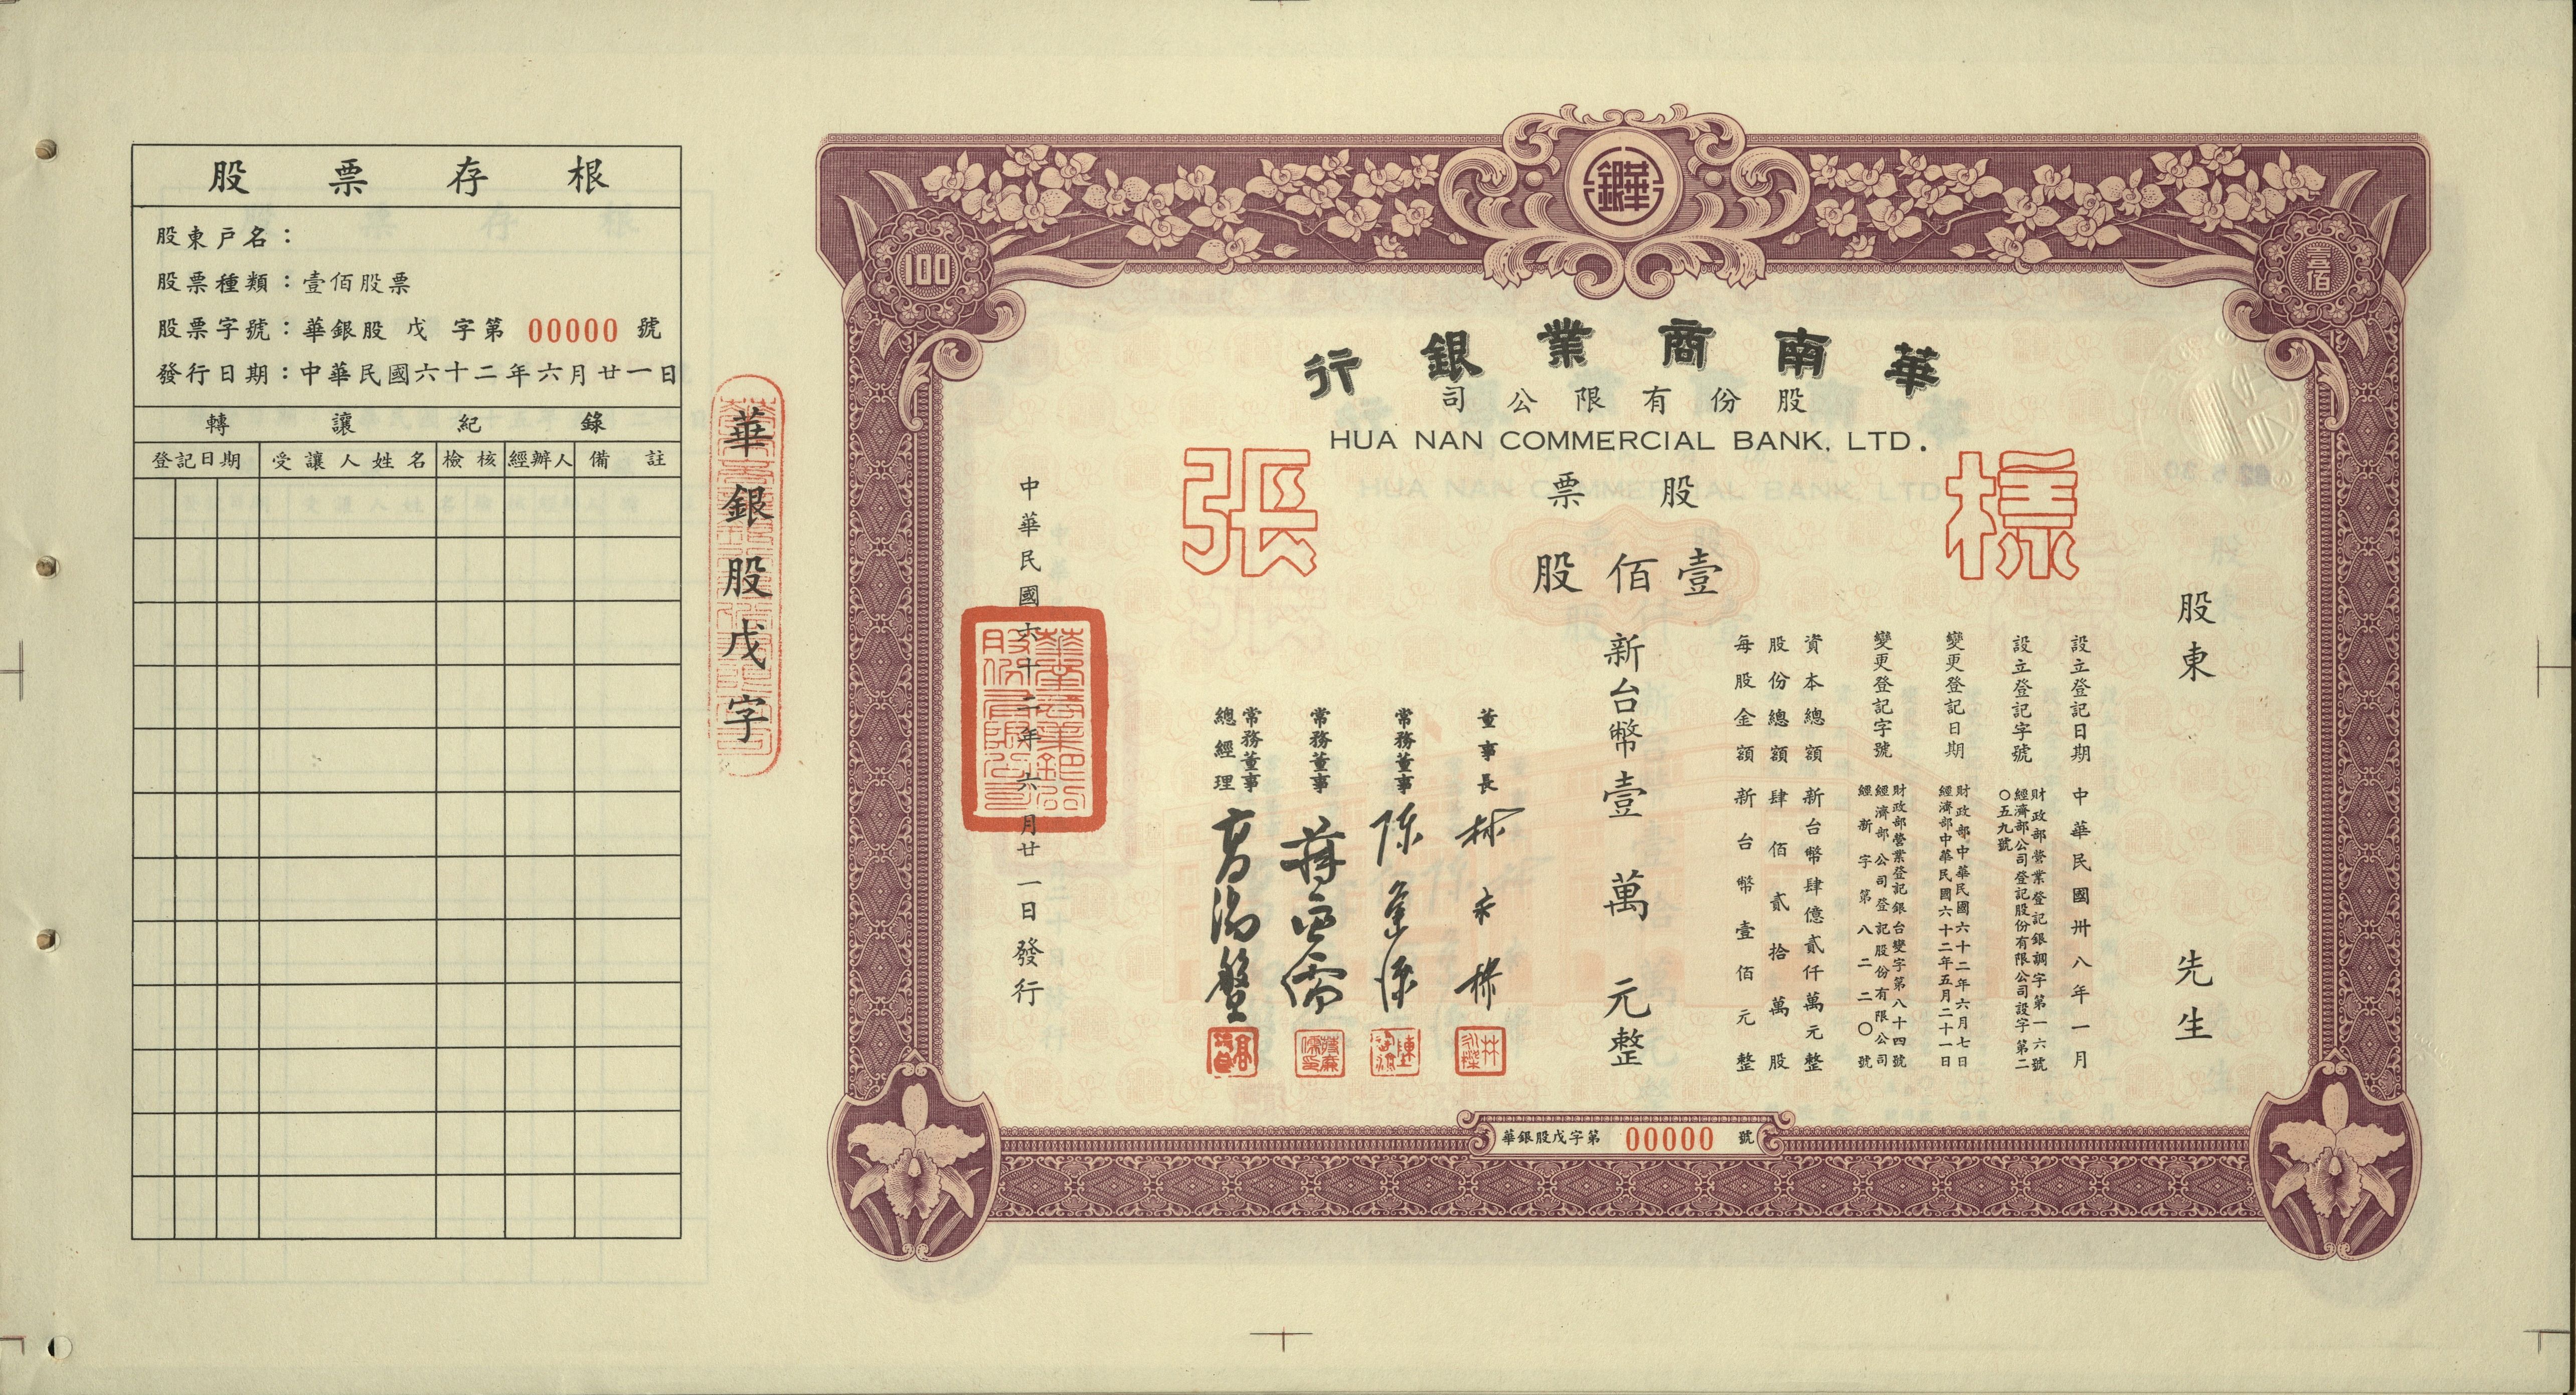 股票存根
股東戶名：
股票種類：壹佰股票
股票字號：華銀股 戊 字第 00000 號
發行日期：中華民國六十二年六月廿一日
轉讓紀錄
登記日期 受讓人姓名 檢核 經辦人 備註
華銀股戊字
華銀
100
壹佰
華南商業銀行
股份有限公司
HUA NAN COMMERCIAL BANK, LTD.
股票
標張
壹佰股
股東 先生
設立登記日期 中華民國卅八年一月
設立登記字號 財政部營業登記銀調字第一六號
經濟部公司登記股份有限公司設字第二〇五九號
變更登記日期 財政部中華民國六十二年六月七日
經濟部中華民國六十二年五月二十一日
變更登記字號 財政部營業登記銀台變字第八十四號
經濟部公司登記股份有限公司
經新字第八二二〇號
資本總額新台幣肆億貳仟萬元整
股份總額肆佰貳拾萬股
每股金額新台幣壹佰元整
新台幣壹萬元整
董事長
常務董事
常務董事
常務董事
總經理
中華民國六十二年六月廿一日發行
華銀股戊字第 00000 號